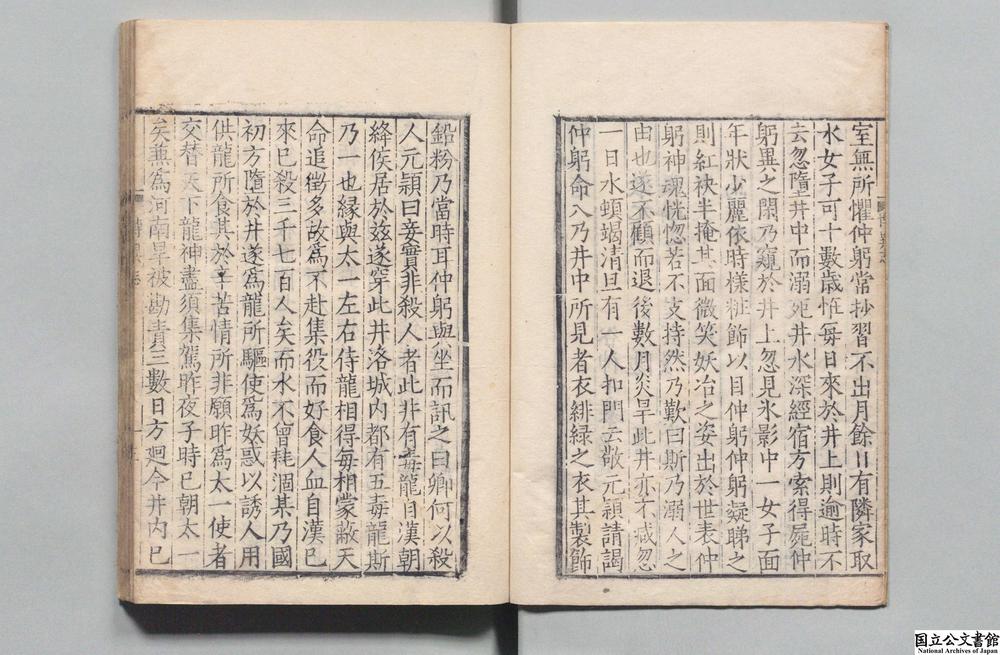 室無所懼仲躬常抄習不出月餘日有隣家取
水女子可十數歲恠每日來於井上則逾時不
去忽墮井中而溺死井水深經宿方索得屍仲
躬異之閑乃窺於井上忽見水影中一女子面
年狀少麗依時樣粧飾以目仲躬仲躬凝睇之
則紅袂半掩其面微笑妖冶之姿出於世表仲
躬神魂恍惚若不支持然乃歎曰斯乃溺人之
由也遂不顧而退後數月炎旱此井亦不減忽
一日水頓竭清旦有一人扣門云敬元穎請謁
仲躬命入乃井中所見者衣緋綠之衣其製飾
鉛粉乃當時耳仲躬與坐而訊之曰卿何以殺
人元穎曰妾實非殺人者此非有毒龍自漢朝
絳侯居於茲遂穿此井洛城內都有五毒龍斯
乃一也緣與太一左右侍龍相得每相蒙蔽天
命追徵多故爲不赴集役而好食人血自漢已
來已殺三千七百人矣而水不曾耗涸某乃國
初方墮於井遂爲龍所驅使爲妖惑以誘人用
供龍所食其於辛苦情所非願昨爲太一使者
交替天下龍神盡須集駕昨夜子時已朝太一
矣兼爲河南旱被勘責三數日方廻今井內已
国立公文書館
National Archives of Japan